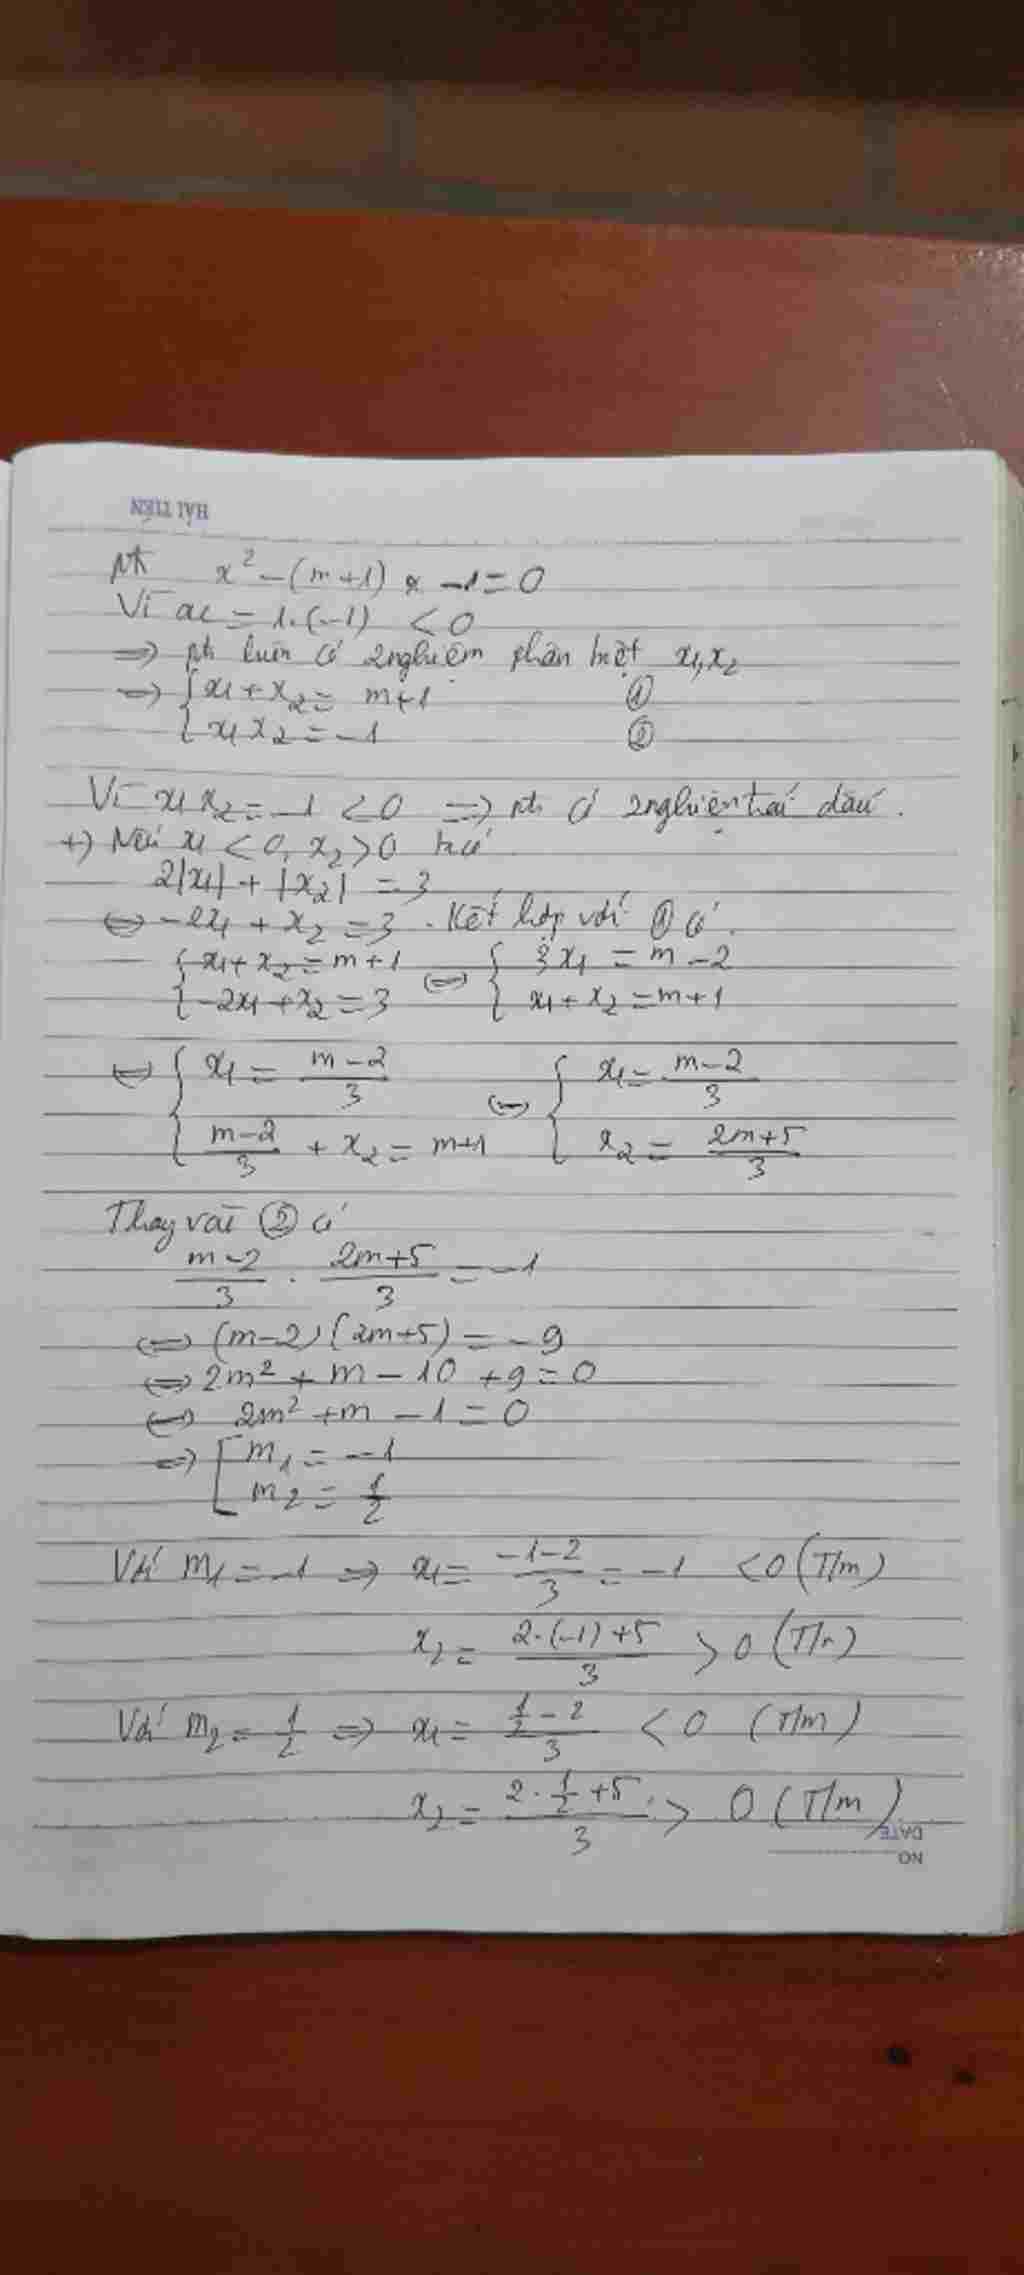 HẢI TIẾN
pt x² - (m+1) x - 1 = 0
Vì ac = 1.(-1) < 0
=> pt luôn có 2 nghiệm phân biệt x₁, x₂
=> { x₁ + x₂ = m+1 ①
{ x₁ x₂ = -1 ②
Vì x₁ x₂ = -1 < 0 => pt có 2 nghiệm trái dấu.
+) Nếu x₁ < 0, x₂ > 0 ta có
2|x₁| + |x₂| = 3
<=> -2x₁ + x₂ = 3. Kết hợp với ① có.
{ x₁ + x₂ = m+1 <=> { 3x₁ = m - 2
{ -2x₁ + x₂ = 3 { x₁ + x₂ = m+1
<=> { x₁ = (m-2)/3 <=> { x₁ = (m-2)/3
{ (m-2)/3 + x₂ = m+1 { x₂ = (2m+5)/3
Thay vào ② có
(m-2)/3 . (2m+5)/3 = -1
<=> (m-2)(2m+5) = -9
<=> 2m² + m - 10 + 9 = 0
<=> 2m² + m - 1 = 0
=> [ m₁ = -1
[ m₂ = 1/2
Với m₁ = -1 => x₁ = (-1-2)/3 = -1 < 0 (T/m)
x₂ = (2.(-1)+5)/3 > 0 (T/m)
Với m₂ = 1/2 => x₁ = (1/2 - 2)/3 < 0 (T/m)
x₂ = (2.1/2 + 5)/3 > 0 (T/m)
DATE
NO